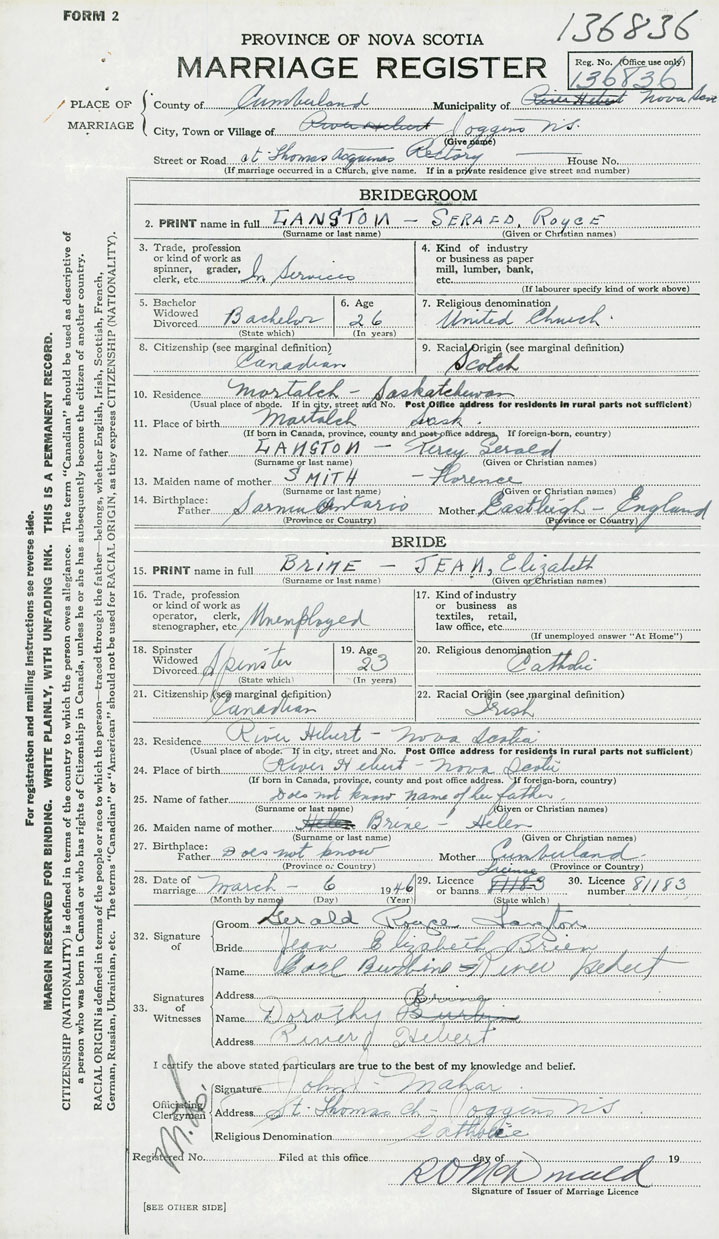 FORM 2
136836
PROVINCE OF NOVA SCOTIA
MARRIAGE REGISTER
Reg. No. (Office use only)
136836
PLACE OF MARRIAGE
County of Cumberland Municipality of River Hebert Nova
City, Town or Village of River Hebert Joggins N.S.
(Give name)
Street or Road at St Thomas Rectory House No.
(If marriage occurred in a Church, give name. If in a private residence give street and number)
BRIDEGROOM
2. PRINT name in full LANGTON - GERALD, ROYCE
(Surname or last name) (Given or Christian names)
3. Trade, profession or kind of work as spinner, grader, clerk, etc. In Services
4. Kind of industry or business as paper mill, lumber, bank, etc.
(If labourer specify kind of work above)
5. Bachelor Widowed Divorced Bachelor
(State which)
6. Age 26
(In years)
7. Religious denomination
United Church.
8. Citizenship (see marginal definition)
Canadian
9. Racial Origin (see marginal definition)
Scotch
10. Residence Mortalch - Saskatchewan
(Usual place of abode. If in city, street and No. Post Office address for residents in rural parts not sufficient)
11. Place of birth Mortalch Sask.
(If born in Canada, province, county and post office address. If foreign-born, country)
12. Name of father LANGTON - Percy Gerald
(Surname or last name) (Given or Christian names)
13. Maiden name of mother SMITH - Florence
(Surname or last name) (Given or Christian names)
14. Birthplace: Father Sarnia Ontario Mother Eastleigh - England
(Province or Country) (Province or Country)
BRIDE
15. PRINT name in full BRINE - JEAN, Elizabeth
(Surname or last name) (Given or Christian names)
16. Trade, profession or kind of work as operator, clerk, stenographer, etc. Unemployed
17. Kind of industry or business as textiles, retail, law office, etc.
(If unemployed answer "At Home")
18. Spinster Widowed Divorced Spinster
(State which)
19. Age 23
(In years)
20. Religious denomination
Catholic
21. Citizenship (see marginal definition)
Canadian
22. Racial Origin (see marginal definition)
Irish
23. Residence River Hebert - Nova Scotia
(Usual place of abode. If in city, street and No. Post Office address for residents in rural parts not sufficient)
24. Place of birth River Hebert - Nova Scotia
(If born in Canada, province, county and post office address. If foreign-born, country)
25. Name of father Does not know name of her father.
(Surname or last name) (Given or Christian names)
26. Maiden name of mother Helen Brine - Helen
(Surname or last name) (Given or Christian names)
27. Birthplace: Father Does not know Mother Cumberland
(Province or Country) (Province or Country)
28. Date of marriage March - 6 1946
(Month by name) (Day) (Year)
29. Licence or banns 81183 License
(State which)
30. Licence number 81183
32. Signature of
Groom Gerald Royce Langton
Bride Jean Elizabeth Brien
33. Signatures of Witnesses
Name Carl River Hebert
Address
Name Dorothy Brine
Address River Hebert
I certify the above stated particulars are true to the best of my knowledge and belief.
Officiating Clergyman
Signature John Mahar
Address St. Thomas Ch - Joggins N.S
Religious Denomination Catholic
Registered No. Filed at this office day of 19
Signature of Issuer of Marriage Licence
[SEE OTHER SIDE]
For registration and mailing instructions see reverse side.
MARGIN RESERVED FOR BINDING. WRITE PLAINLY, WITH UNFADING INK. THIS IS A PERMANENT RECORD.
CITIZENSHIP (NATIONALITY) is defined in terms of the country to which the person owes allegiance. The term "Canadian" should be used as descriptive of
a person who was born in Canada or who has rights of Citizenship in Canada, unless he or she has subsequently become the citizen of another country.
RACIAL ORIGIN is defined in terms of the people or race to which the person—traced through the father—belongs, whether English, Irish, Scottish, French,
German, Russian, Ukrainian, etc. The terms "Canadian" or "American" should not be used for RACIAL ORIGIN, as they express CITIZENSHIP (NATIONALITY).